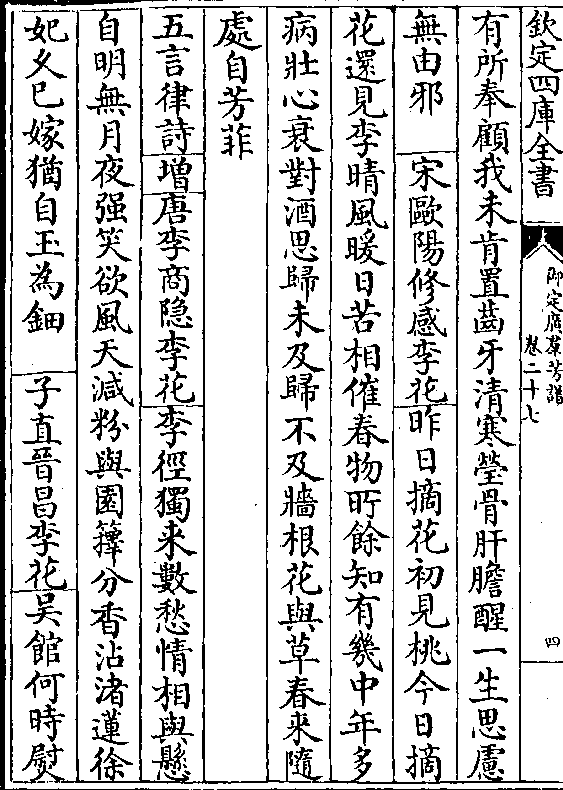 欽定四庫全書
御定廣羣芳譜
卷二十七
四
有所奉顧我未肯置齒牙清寒瑩骨肝膽醒一生思慮
無由邪 宋歐陽修感李花昨日摘花初見桃今日摘
花還見李晴風暖日苦相催春物所餘知有幾中年多
病壯心衰對酒思歸未及歸不及牆根花與草春來隨
處自芳菲
五言律詩增唐李商隱李花李徑獨來數愁情相與懸
自明無月夜强笑欲風天減粉與園籜分香沾渚蓮徐
妃久已嫁猶自玉為鈿 子直晉昌李花吳館何時熨